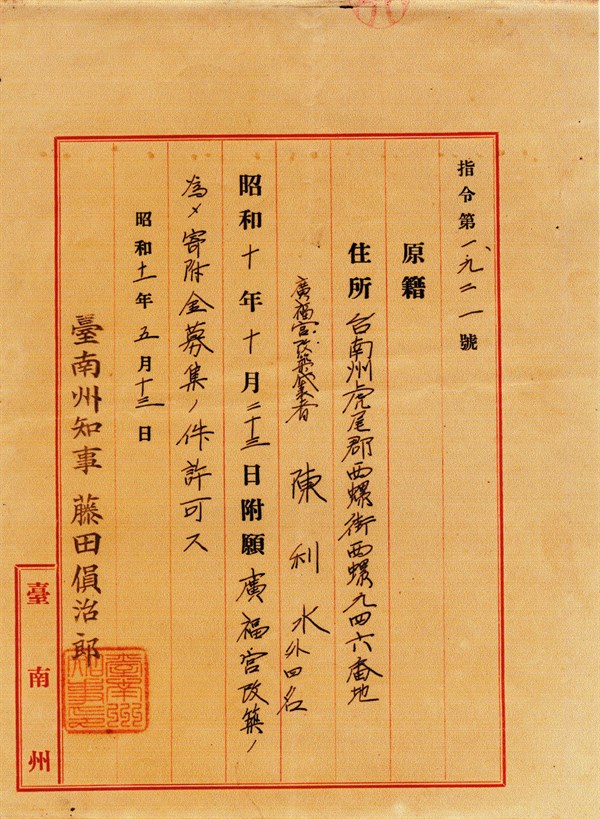 指令第一、九二一號
原籍
住所 台南州虎尾郡西螺街西螺九四六番地
廣福宮改築代表者 陳利水外四名
昭和十年十月二十三日附願廣福宮改築ノ
為メ寄附金募集ノ件許可ス
昭和十一年五月十三日
臺南州知事 藤田傊治郎
臺南州